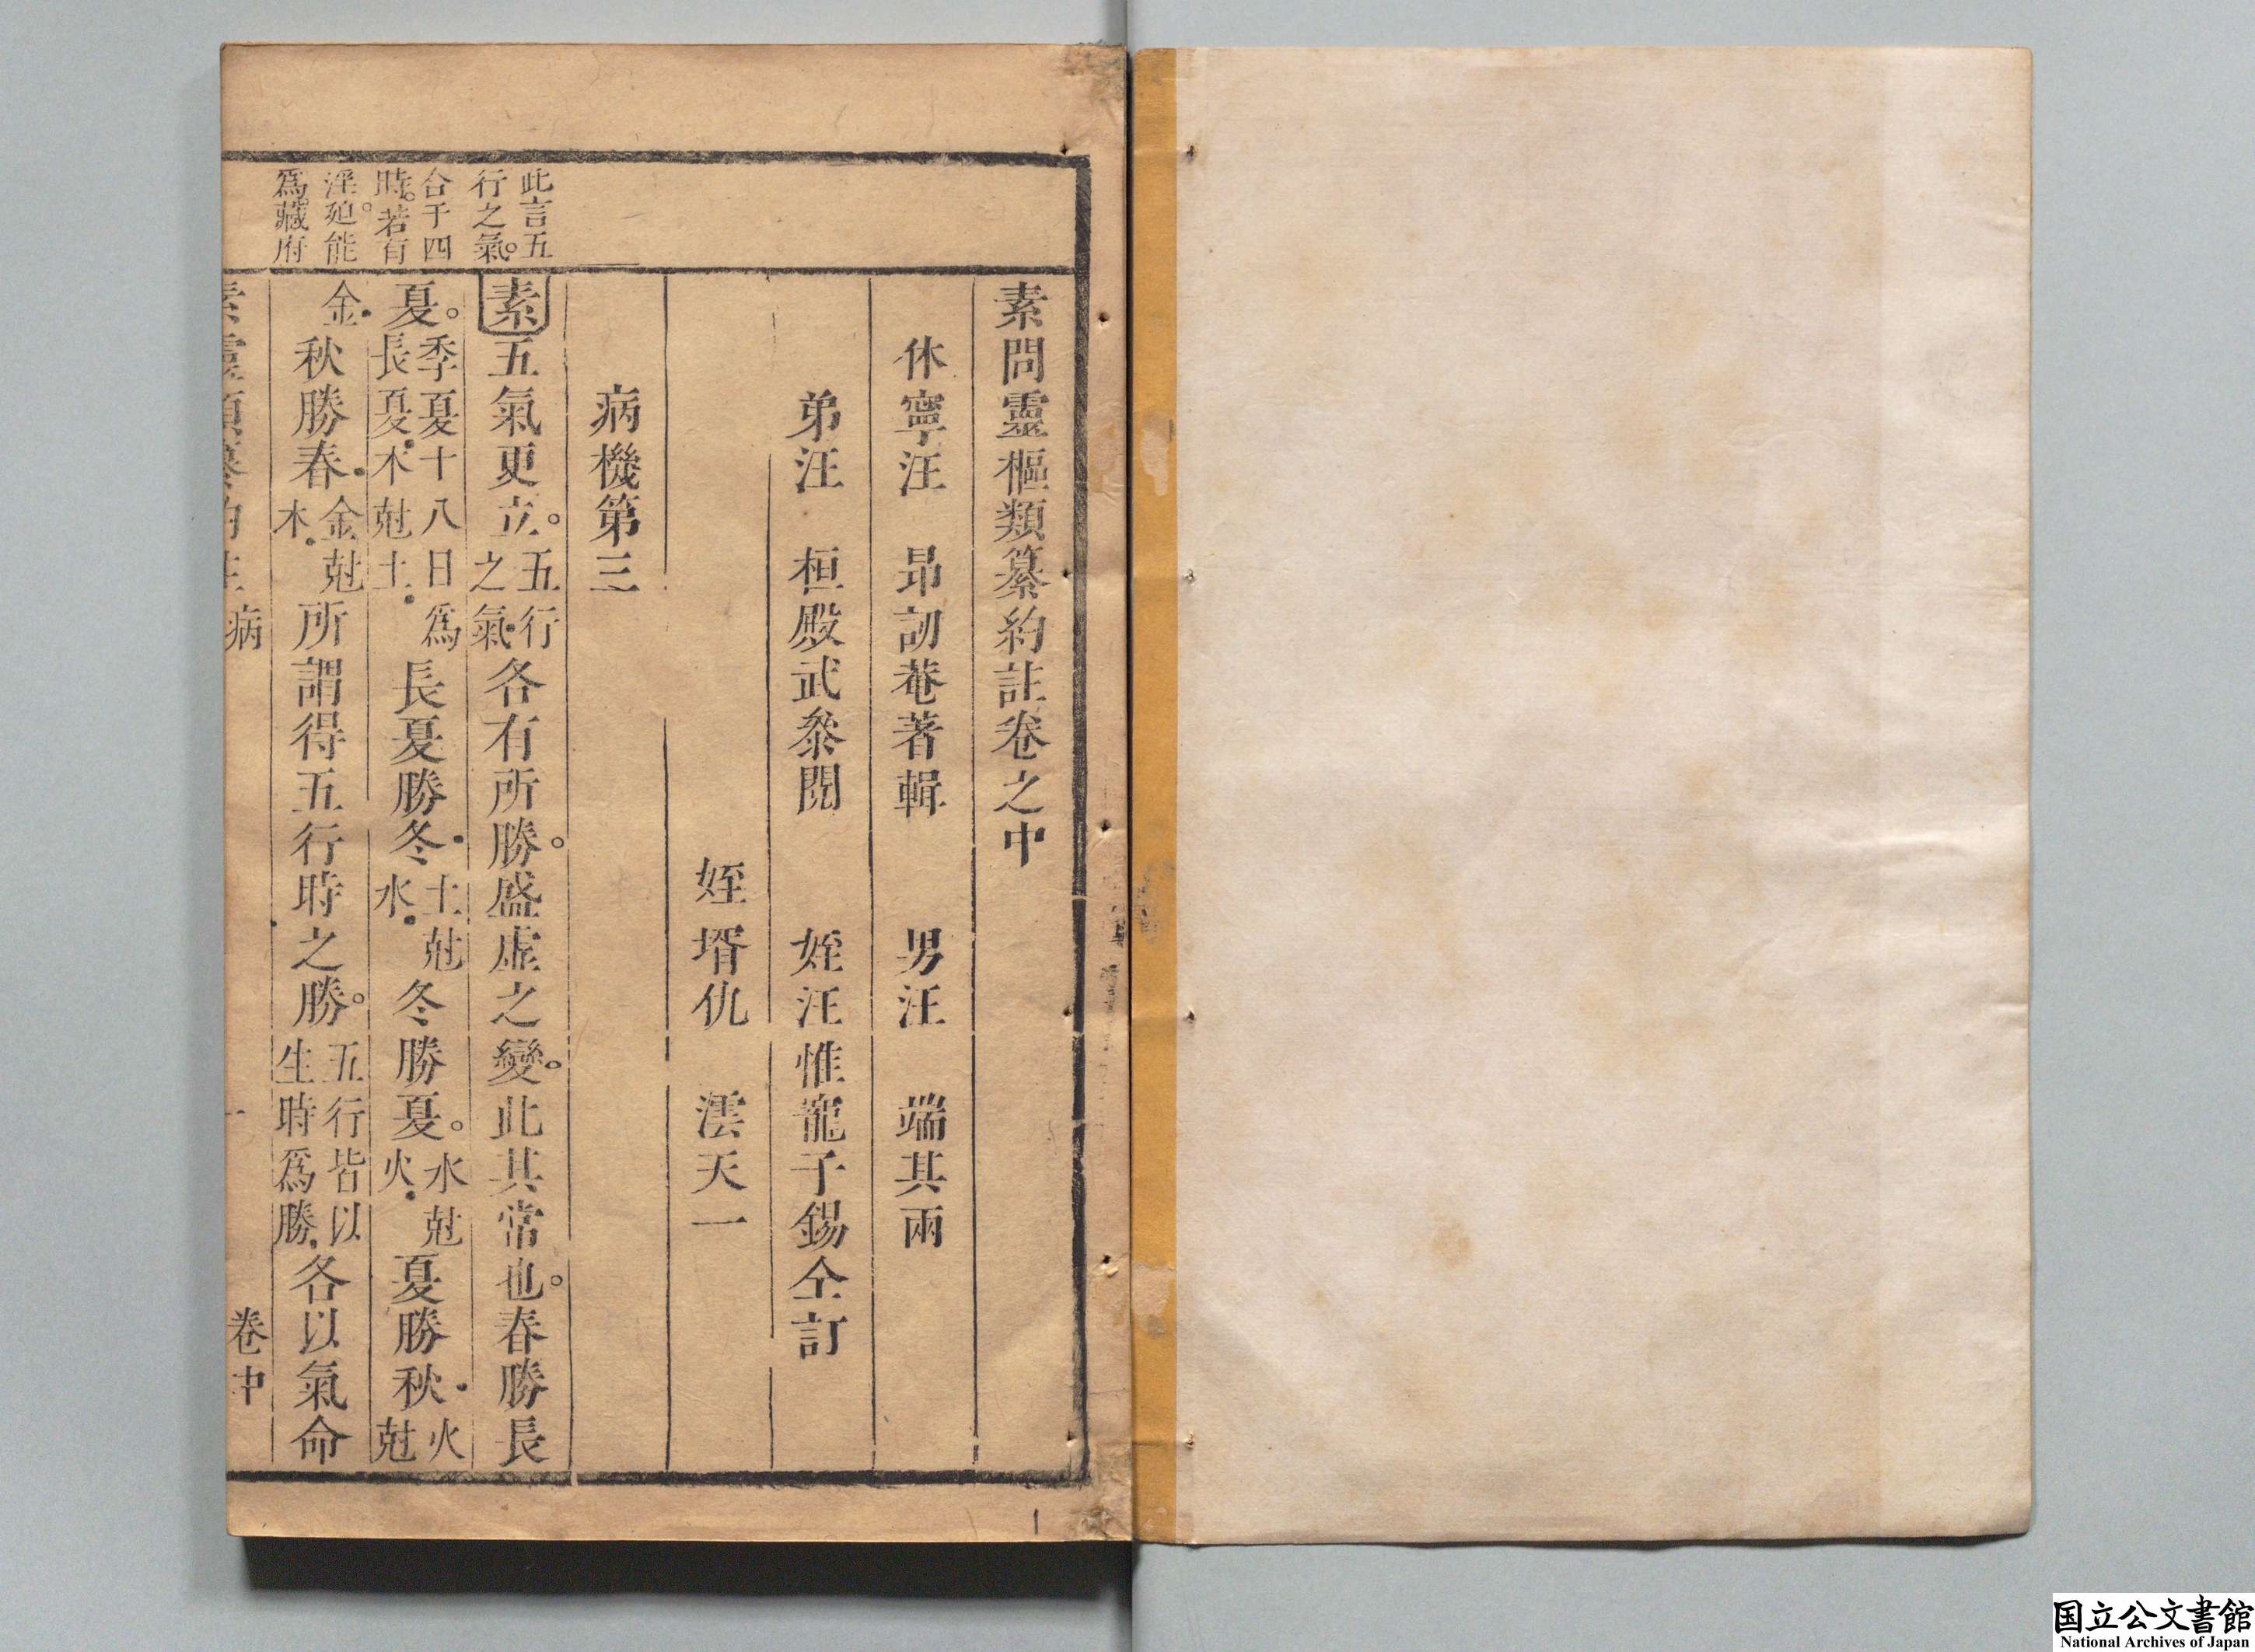 素問靈樞類纂約註卷之中
休寧汪　昂訒菴著輯　男汪　端其兩
弟汪　桓殿武叅閱　姪汪惟寵子錫仝訂
姪壻仇　澐天一
病機第三
此言五
行之氣。
合于四
時。若有
淫。廹能
爲藏府
素五氣更立。五行之氣各有所勝。盛虛之變。此其常也。春勝長
夏。季夏十八日爲長夏木尅土長夏勝冬土尅水冬勝夏。水尅火夏勝秋火尅
金秋勝春金尅木所謂得五行時之勝。五行皆以生時爲勝各以氣命
病　一　卷中
国立公文書館
National Archives of Japan